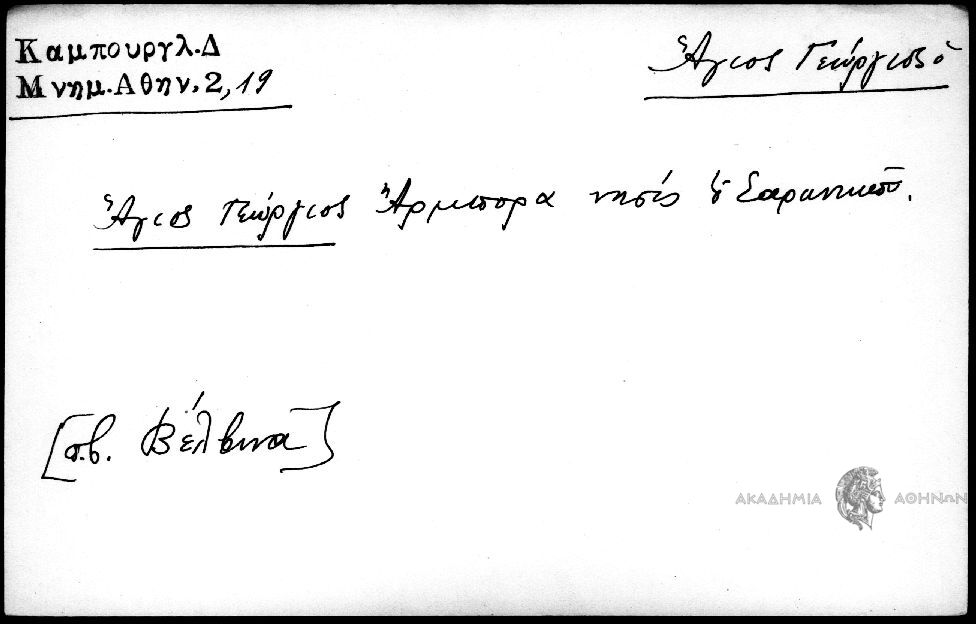 Καμπουργλ.Δ
Μνημ.Αθην.2,19
Ἅγιος Γεώργιος ὁ
Ἅγιος Γεώργιος Ἄρμπορα νησίς τοῦ Σαρωνικοῦ.
[π.β. Βέλβινα]
ΑΚΑΔΗΜΙΑ ΑΘΗΝΩΝ